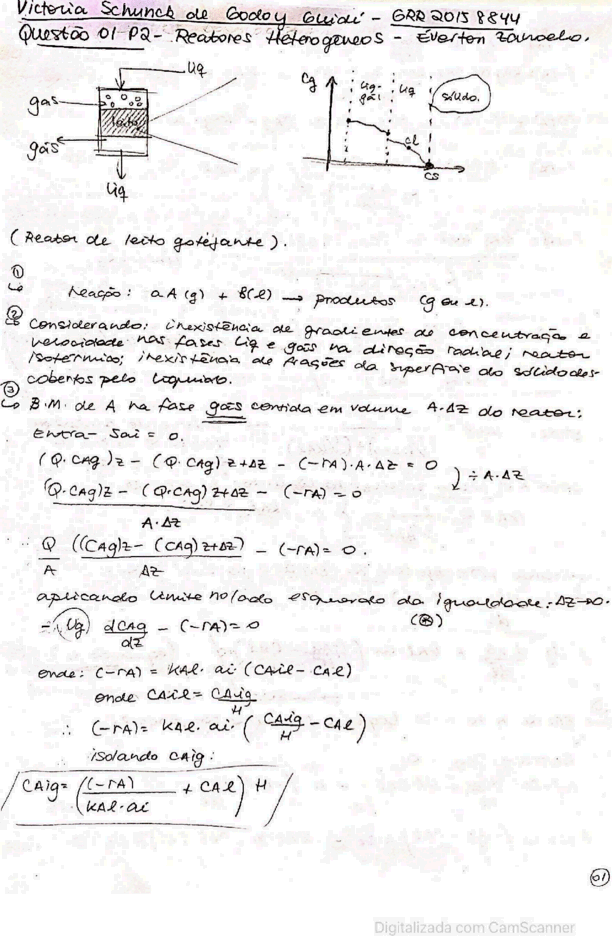 Victoria Schunck de Godoy Guidi - GRR 20158844
Questão 01 P2 - Reatores Heterogêneos - Éverton Zanoelo.
liq
gas
leito
gás
liq
Cg
liq-
gás
liq
sólido.
Cl
Cs
(Reator de leito gotejante).
①
Reação: aA(g) + B(l) → produtos (g ou l).
②
Considerando: inexistência de gradientes de concentração e
velocidade nas fases liq e gás na direção radial; reator
isotérmico; inexistência de frações da superfície do sólido des-
cobertos pelo líquido.
③
B.M. de A na fase gás contida em volume A.ΔZ do reator:
Entra - Sai = 0.
(Q.CAg)z - (Q.CAg)z+ΔZ - (-rA).A.ΔZ = 0
) ÷ A.ΔZ
(Q.CAg)z - (Q.CAg)z+ΔZ - (-rA) = 0
A.ΔZ
∴ Q ((CAg)z - (CAg)z+ΔZ) - (-rA) = 0.
A ΔZ
aplicando limite no lado esquerdo da igualdade: ΔZ→0.
- (Ug) dCAg - (-rA) = 0 (⊛)
dZ
onde: (-rA) = KAl. ai (CAil - CAl)
onde CAil = CAig
H
∴ (-rA) = KAl. ai. (CAig - CAl)
H
∴ isolando CAig:
CAig = ((-rA) + CAl) H
KAl.ai
01
Digitalizada com CamScanner